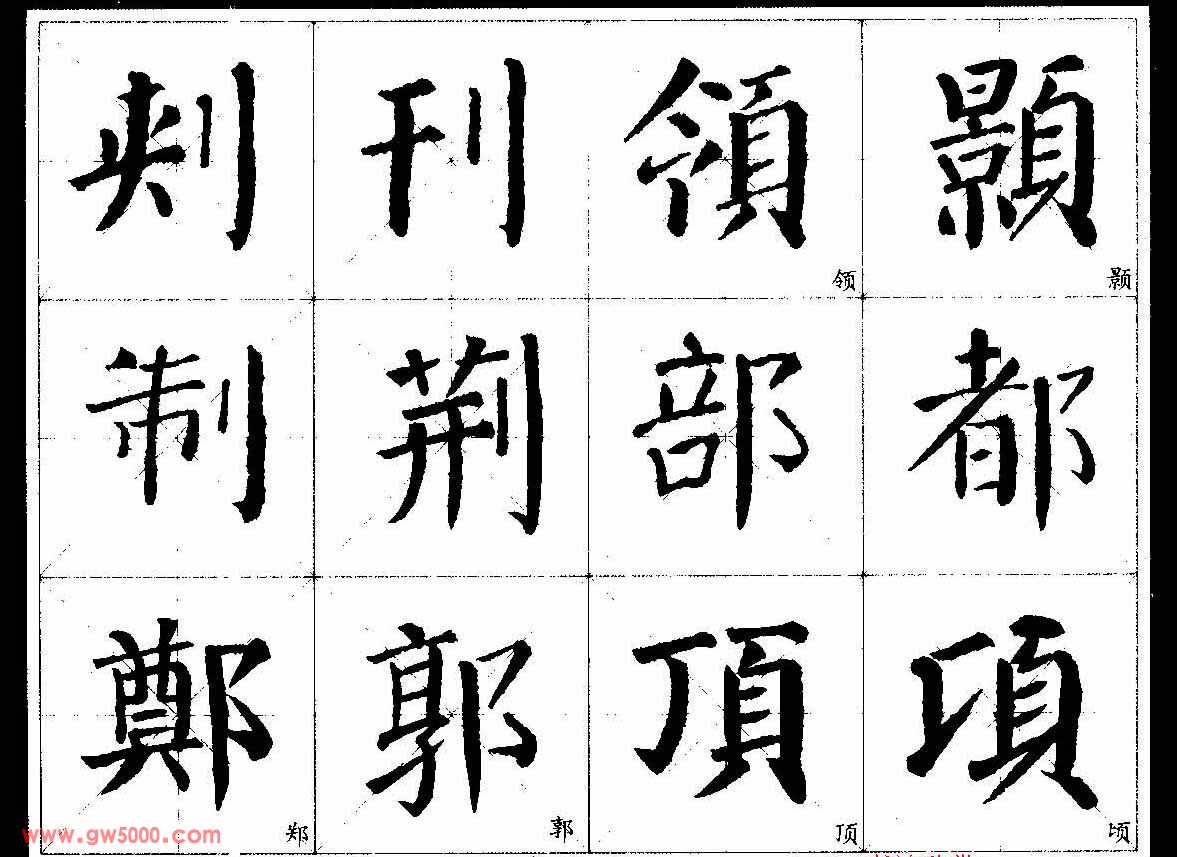 刾 刊 領 顥
领 颢
制 荆 部 都
鄭 郭 頂 頃
郑 郭 顶 顷
www.gw5000.com